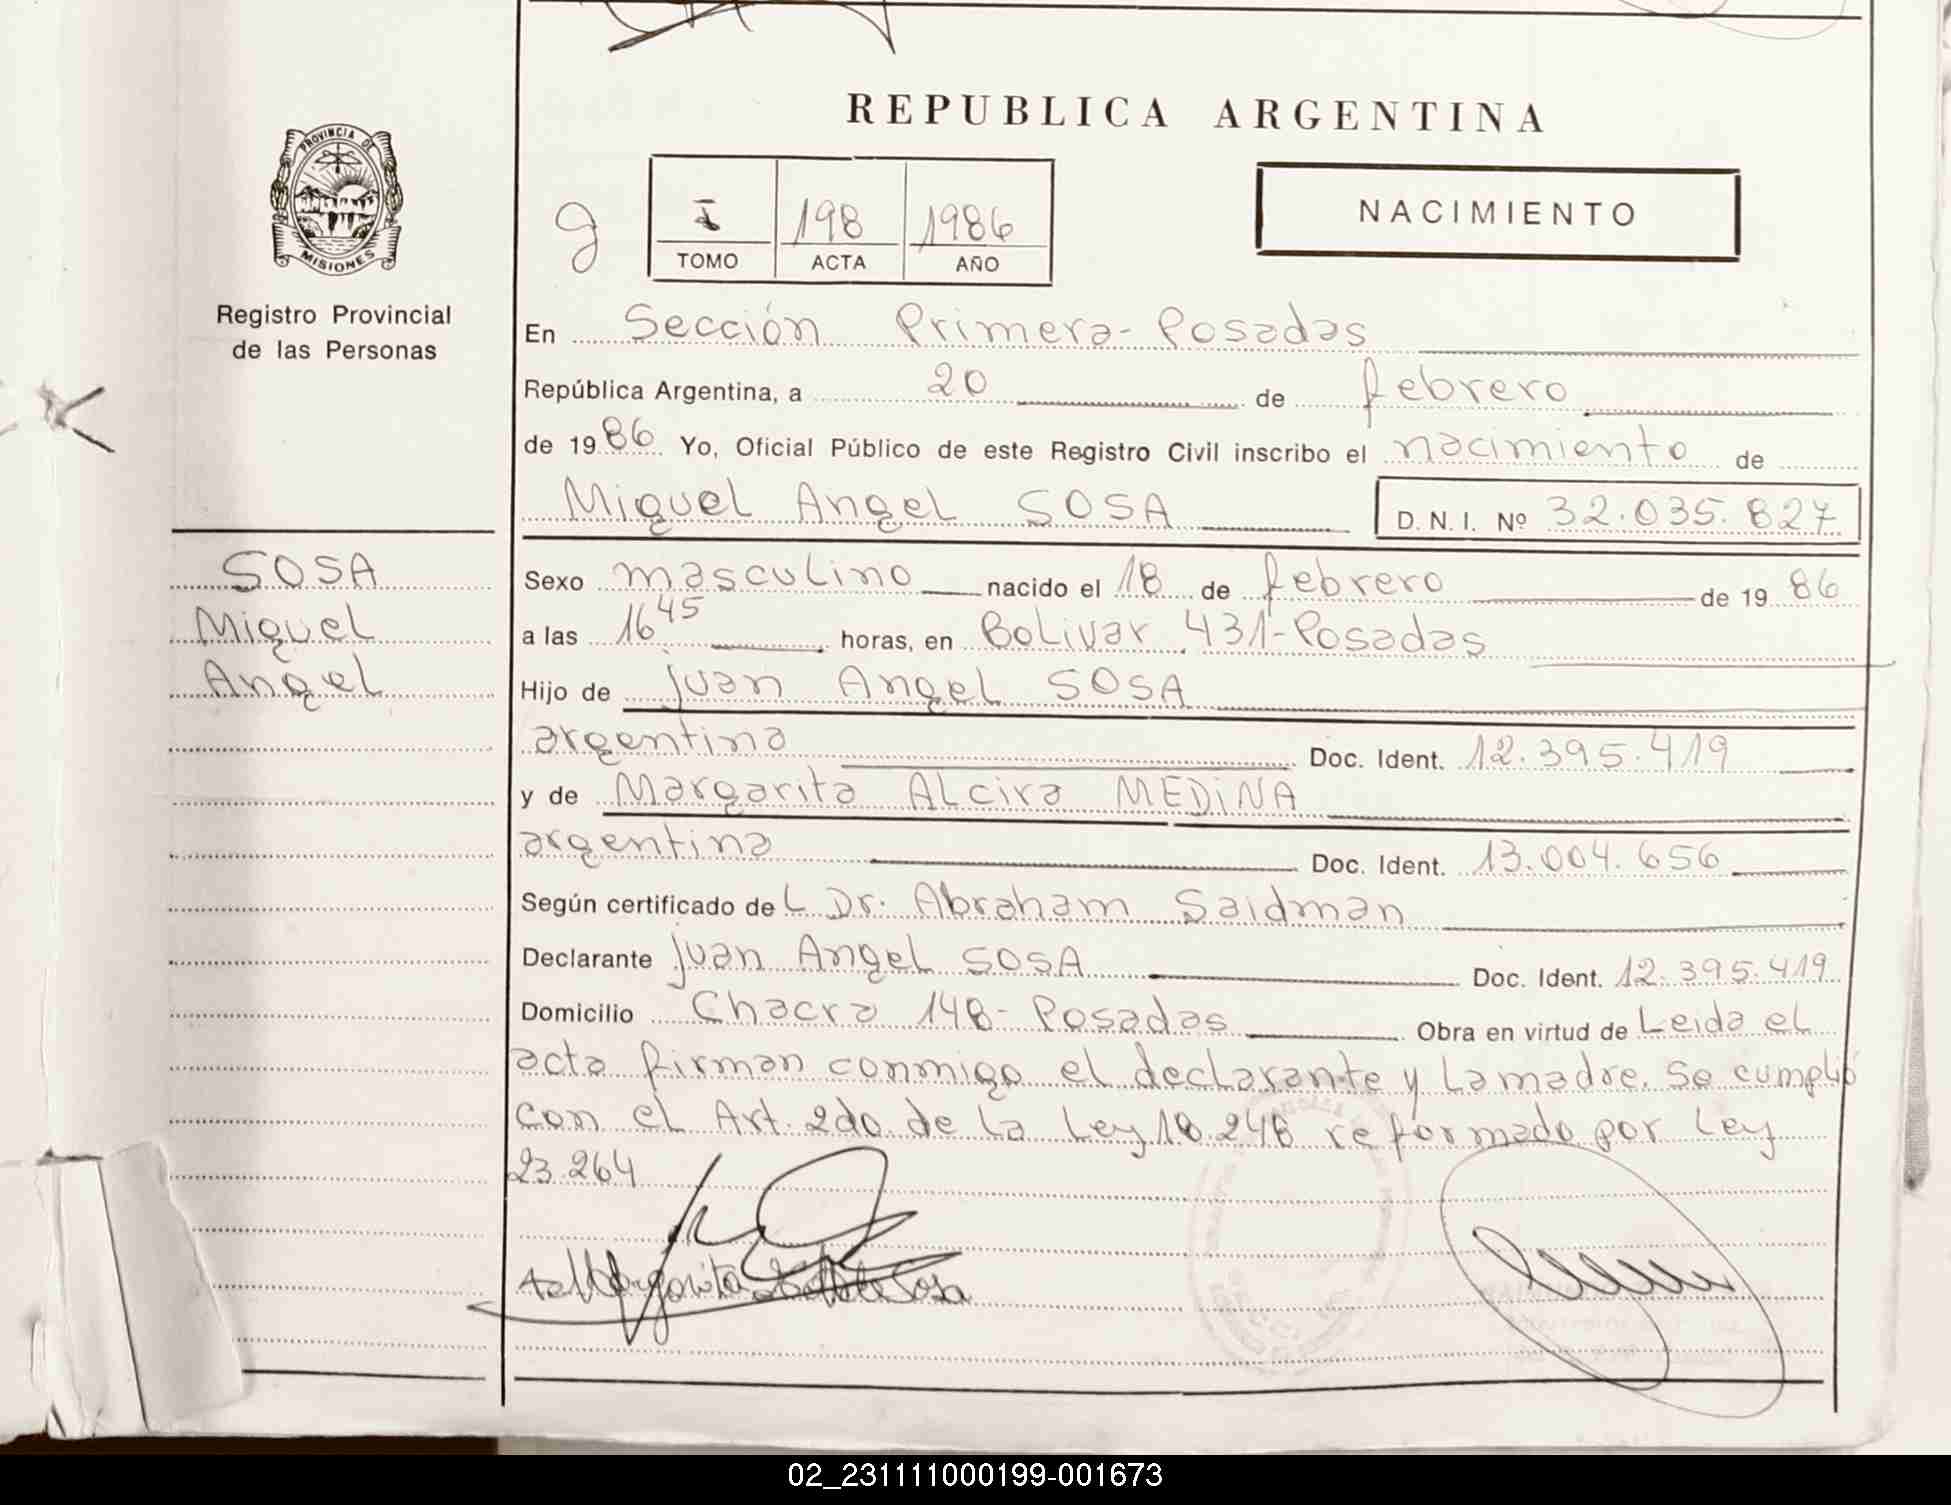 REPUBLICA ARGENTINA
PROVINCIA DE
MISIONES
Registro Provincial
de las Personas
g
I 198 1986
TOMO ACTA AÑO
NACIMIENTO
En Sección Primera-Posadas
República Argentina, a 20 de febrero
de 1986 Yo, Oficial Público de este Registro Civil inscribo el nacimiento de
Miguel Angel SOSA D.N.I. Nº 32.035.827
SOSA
Miguel
Angel
Sexo masculino nacido el 18 de febrero de 1986
a las 16 45 horas, en Bolivar 431-Posadas
Hijo de Juan Angel SOSA
argentina Doc. Ident. 12.395.419
y de Margarita Alcira MEDINA
argentina Doc. Ident. 13.004.656
Según certificado del Dr. Abraham Saidman
Declarante Juan Angel SOSA Doc. Ident. 12.395.419
Domicilio Chacra 148-Posadas Obra en virtud de Leida el
acta firman conmigo el declarante y la madre. Se cumplió
con el Art. 2do. de la Ley 18.248 reformado por Ley
23.264
Margarita Sosa
02_231111000199-001673